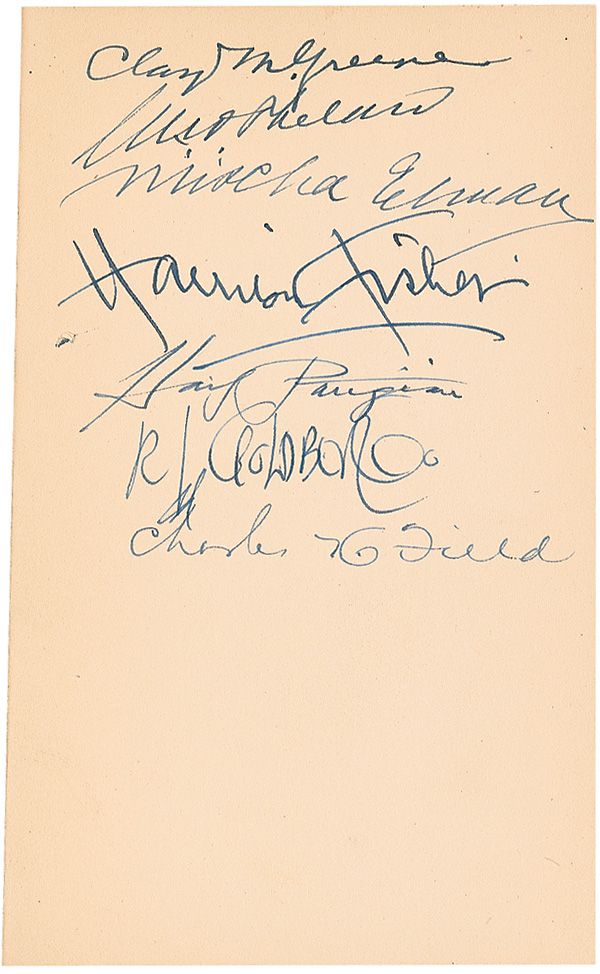 Clay M. Greene
Phelan
Mischa Elman
Harrison Fisher
Haig Patigian
R L GOLDBERG
Charles K Field